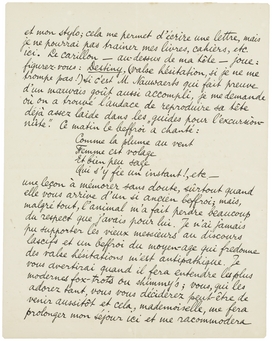 et mon stylo; cela me permet d'écrire une lettre, mais
je ne pourrai pas traîner mes livres, cahiers, etc
ici. Le carillon — au dessus de ma tête — joue:
figurez vous: Destiny, (valse hésitation, si je ne me
trompe pas!) si c'est M. Nauwaerts qui fait preuve
d'un mauvais goût aussi accompli, je me demande
où on a trouvé l'audace de reproduire sa tête
déjà assez laide dans les "guides pour l'excursion-
niste". Ce matin le beffroi a chanté:
Comme la plume au vent
Femme est volage
Et bien peu sage
Qui s'y fie un instant!, etc —
une leçon à mémorer sans doute, surtout quand
elle vous arrive d'un si ancien beffroi; mais,
malgré tout, l'animal m'a fait perdre beaucoup
du respect que j'avais pour lui. Je n'ai jamais
pu supporter les vieux messieurs au discours
lascifs et un beffroi du moyen-age qui fredonne
des valse hésitations m'est antipathique. Je
vous avertirai quand il fera entendre les plus
modernes fox-trots ou shimmy's; vous, qui les
adorez tant, vous vous déciderez peut-être, de
venir aussitôt et cela, mademoiselle, me fera
prolonger mon séjour ici et me raccommodera